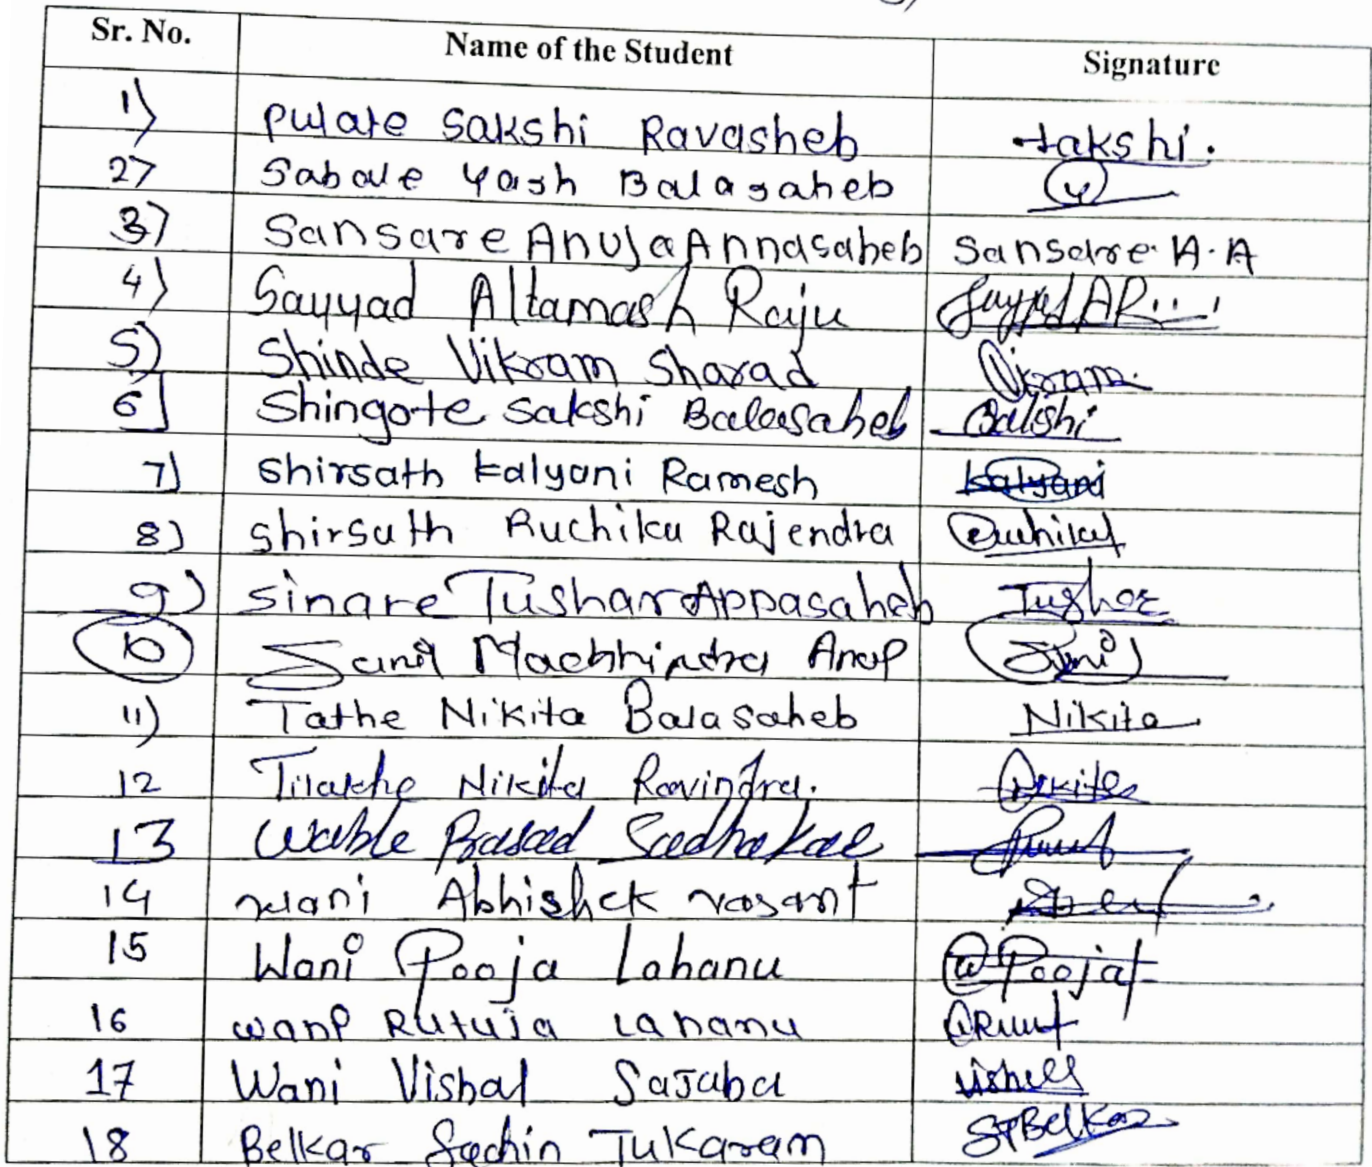 Sr. No. Name of the Student Signature
1) Pulate Sakshi Ravasheb Sakshi.
2) Sabale Yash Balasaheb Y
3) Sansare Anuja Annasaheb Sansare A.A
4) Sayyad Altamash Raju Sayyed AR
5) Shinde Vikram Sharad Vikram
6] Shingote Sakshi Balasaheb Sakshi
7) Shirsath Kalyani Ramesh Kalyani
8) Shirsath Ruchika Rajendra Ruchika
9) Sinare Tushar Appasaheb Tushar
10 Sunil Machhindra Anap Sunil
11) Tathe Nikita Balasaheb Nikita
12 Nikita Ravindra. Nikita
13 Wable Prasad Sudhakar
14 Wani Abhishek Vasant
15 Wani Pooja Lahanu Pooja
16 Wani Rutuja Lahanu
17 Wani Vishal Sajaba Vishal
18 Belkar Sachin Tukaram STBelkar